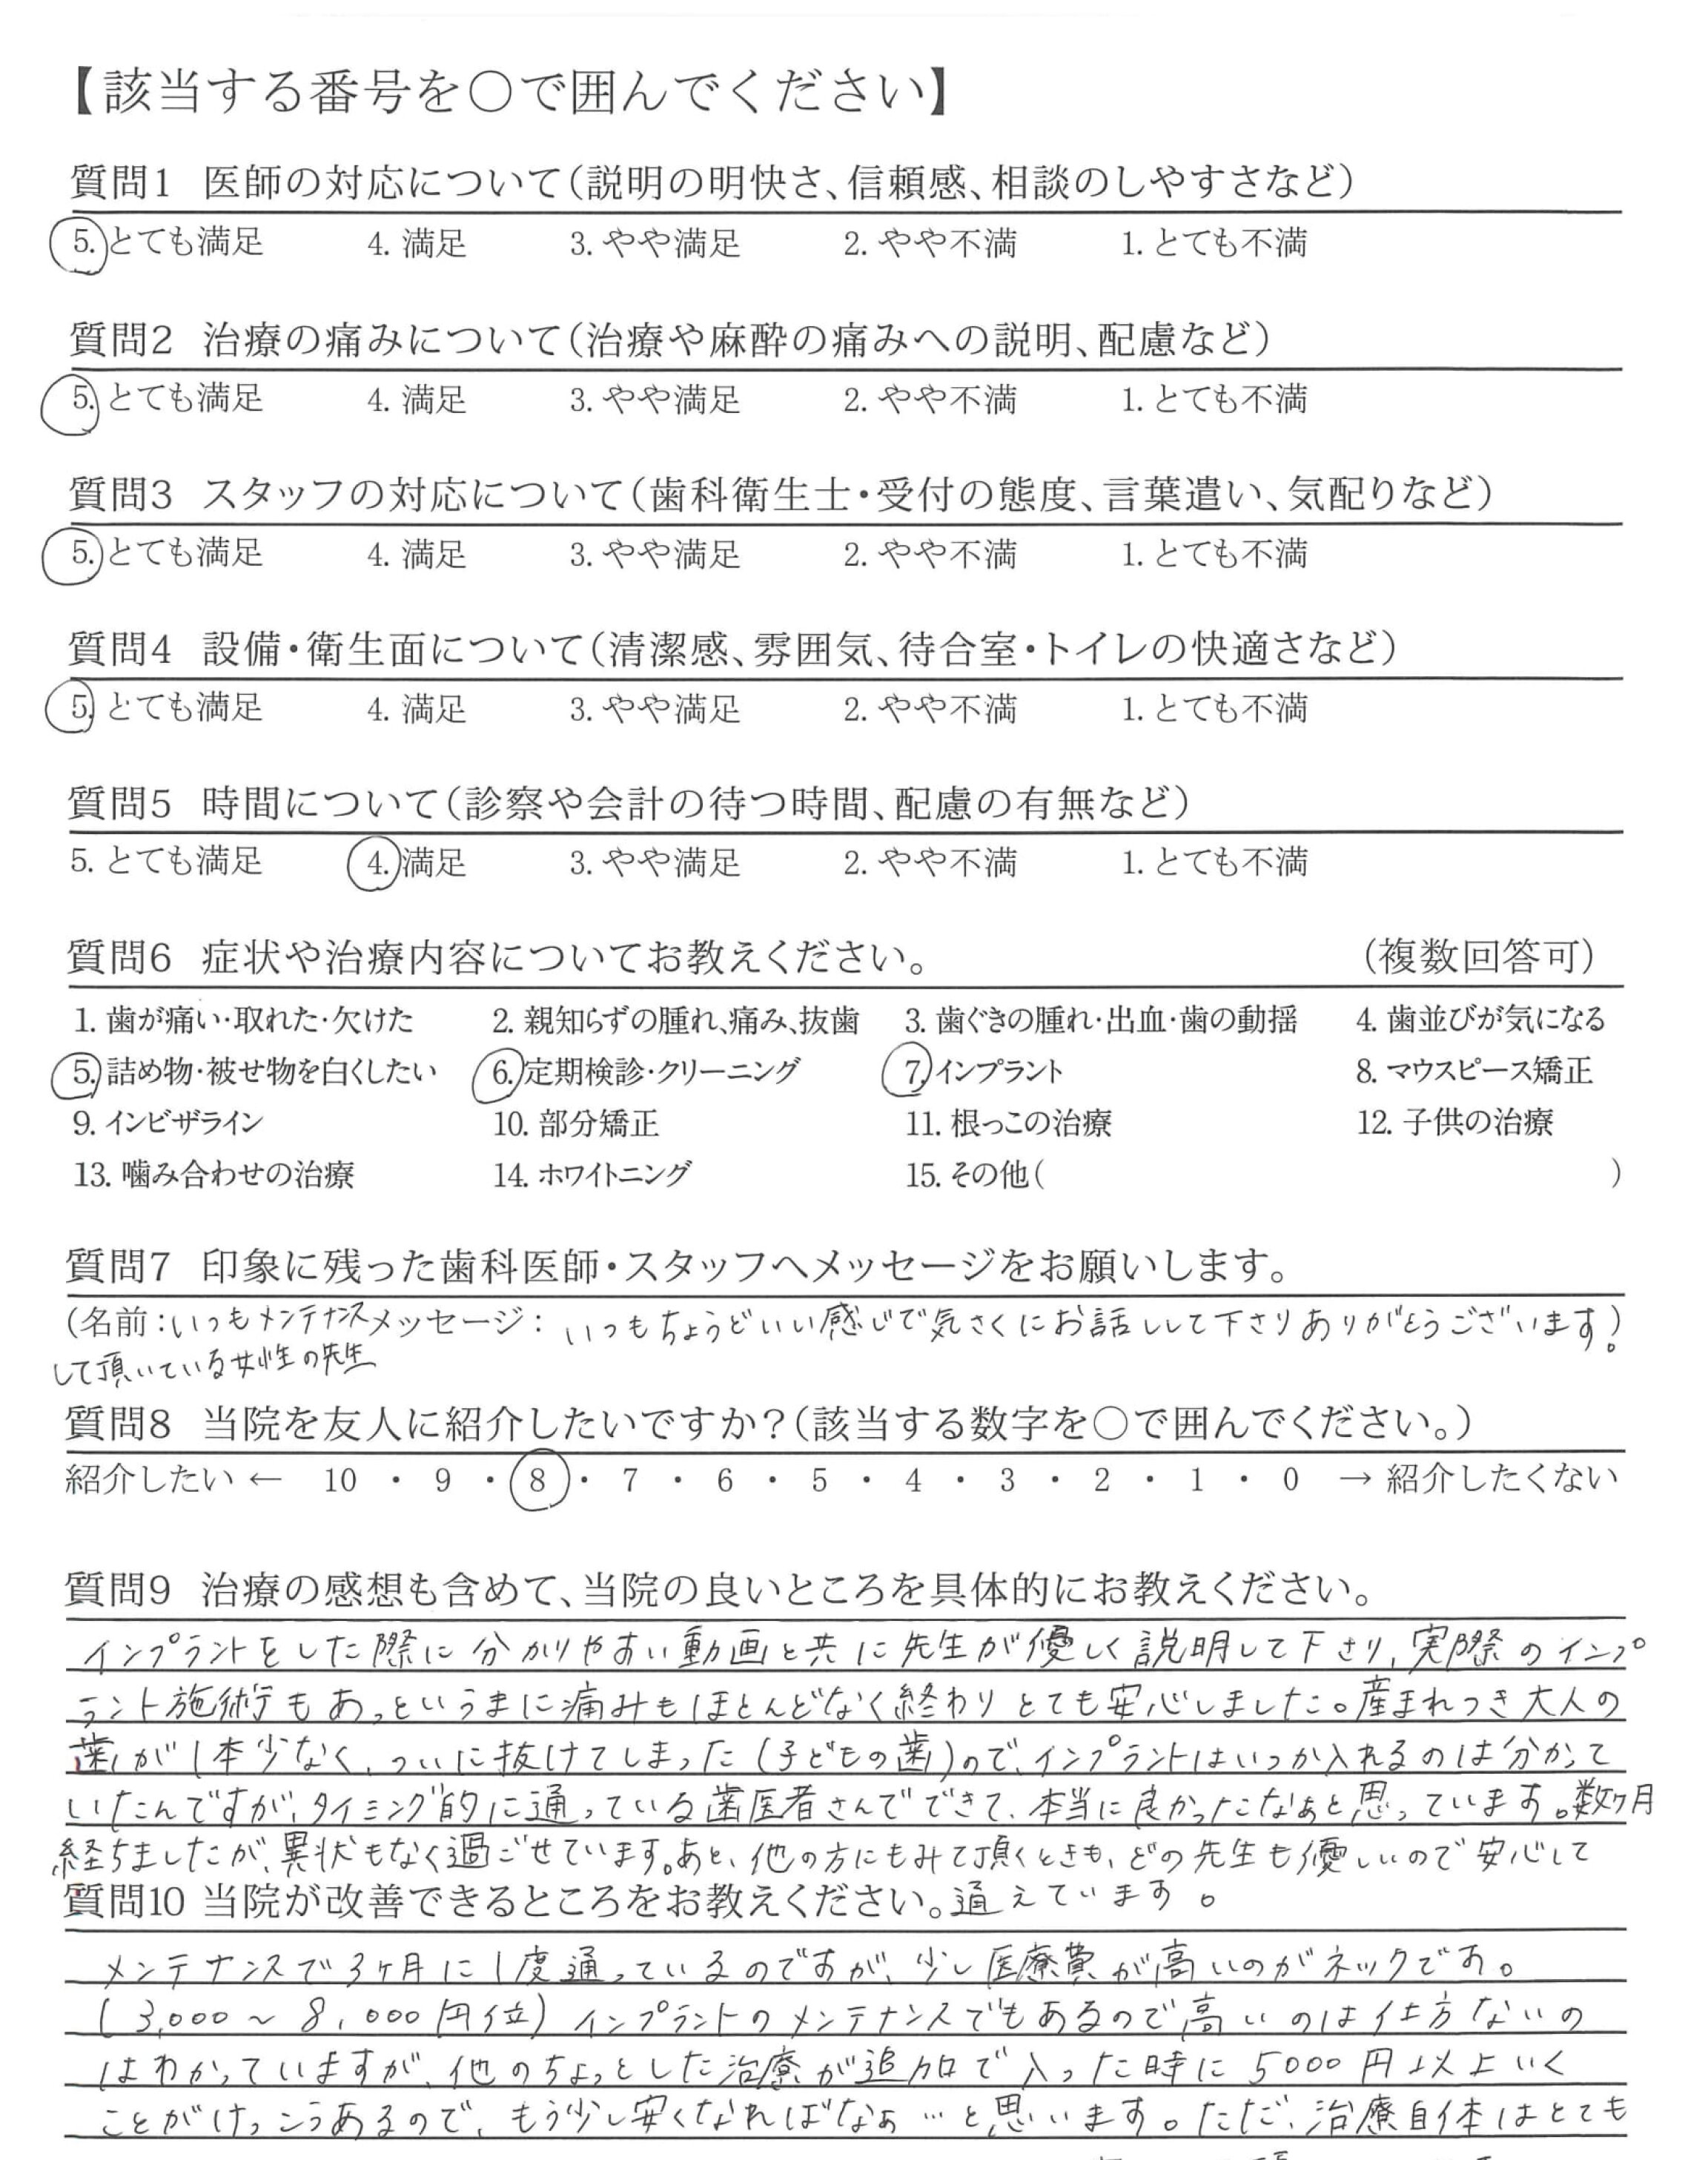 【該当する番号を○で囲んでください】
質問1 医師の対応について(説明の明快さ、信頼感、相談のしやすさなど)
5. とても満足 4. 満足 3. やや満足 2. やや不満 1. とても不満
質問2 治療の痛みについて(治療や麻酔の痛みへの説明、配慮など)
5. とても満足 4. 満足 3. やや満足 2. やや不満 1. とても不満
質問3 スタッフの対応について(歯科衛生士・受付の態度、言葉遣い、気配りなど)
5. とても満足 4. 満足 3. やや満足 2. やや不満 1. とても不満
質問4 設備・衛生面について(清潔感、雰囲気、待合室・トイレの快適さなど)
5. とても満足 4. 満足 3. やや満足 2. やや不満 1. とても不満
質問5 時間について(診察や会計の待つ時間、配慮の有無など)
5. とても満足 4. 満足 3. やや満足 2. やや不満 1. とても不満
質問6 症状や治療内容についてお教えください。 (複数回答可)
1. 歯が痛い・取れた・欠けた 2. 親知らずの腫れ、痛み、抜歯 3. 歯ぐきの腫れ・出血・歯の動揺 4. 歯並びが気になる
5. 詰め物・被せ物を白くしたい 6. 定期検診・クリーニング 7. インプラント 8. マウスピース矯正
9. インビザライン 10. 部分矯正 11. 根っこの治療 12. 子供の治療
13. 噛み合わせの治療 14. ホワイトニング 15. その他( )
質問7 印象に残った歯科医師・スタッフへメッセージをお願いします。
(名前:いつもメンテナンス メッセージ: いつもちょうどいい感じで気さくにお話しして下さりありがとうございます。)
して頂いている女性の先生
質問8 当院を友人に紹介したいですか?(該当する数字を○で囲んでください。)
紹介したい ← 10 ・ 9 ・ 8 ・ 7 ・ 6 ・ 5 ・ 4 ・ 3 ・ 2 ・ 1 ・ 0 → 紹介したくない
質問9 治療の感想も含めて、当院の良いところを具体的にお教えください。
インプラントをした際に分かりやすい動画と共に先生が優しく説明して下さり、実際のインプ
ラント施術もあっというまに痛みもほとんどなく終わりとても安心しました。産まれつき大人の
歯が1本少なく、ついに抜けてしまった(子どもの歯)ので、インプラントはいつか入れるのは分かって
いたんですが、タイミング的に通っている歯医者さんでできて、本当に良かったなぁと思っています。数ヶ月
経ちましたが、異状もなく過ごせています。あと、他の方にもみて頂くときも、どの先生も優しいので安心して
質問10 当院が改善できるところをお教えください。通えています。
メンテナンスで3ヶ月に1度通っているのですが、少し医療費が高いのがネックです。
(3,000~8,000円位)インプラントのメンテナンスでもあるので高いのは仕方ないの
はわかっていますが、他のちょっとした治療が追加で入った時に5000円以上いく
ことがけっこうあるので、もう少し安くなればなぁ…と思います。ただ、治療自体はとても